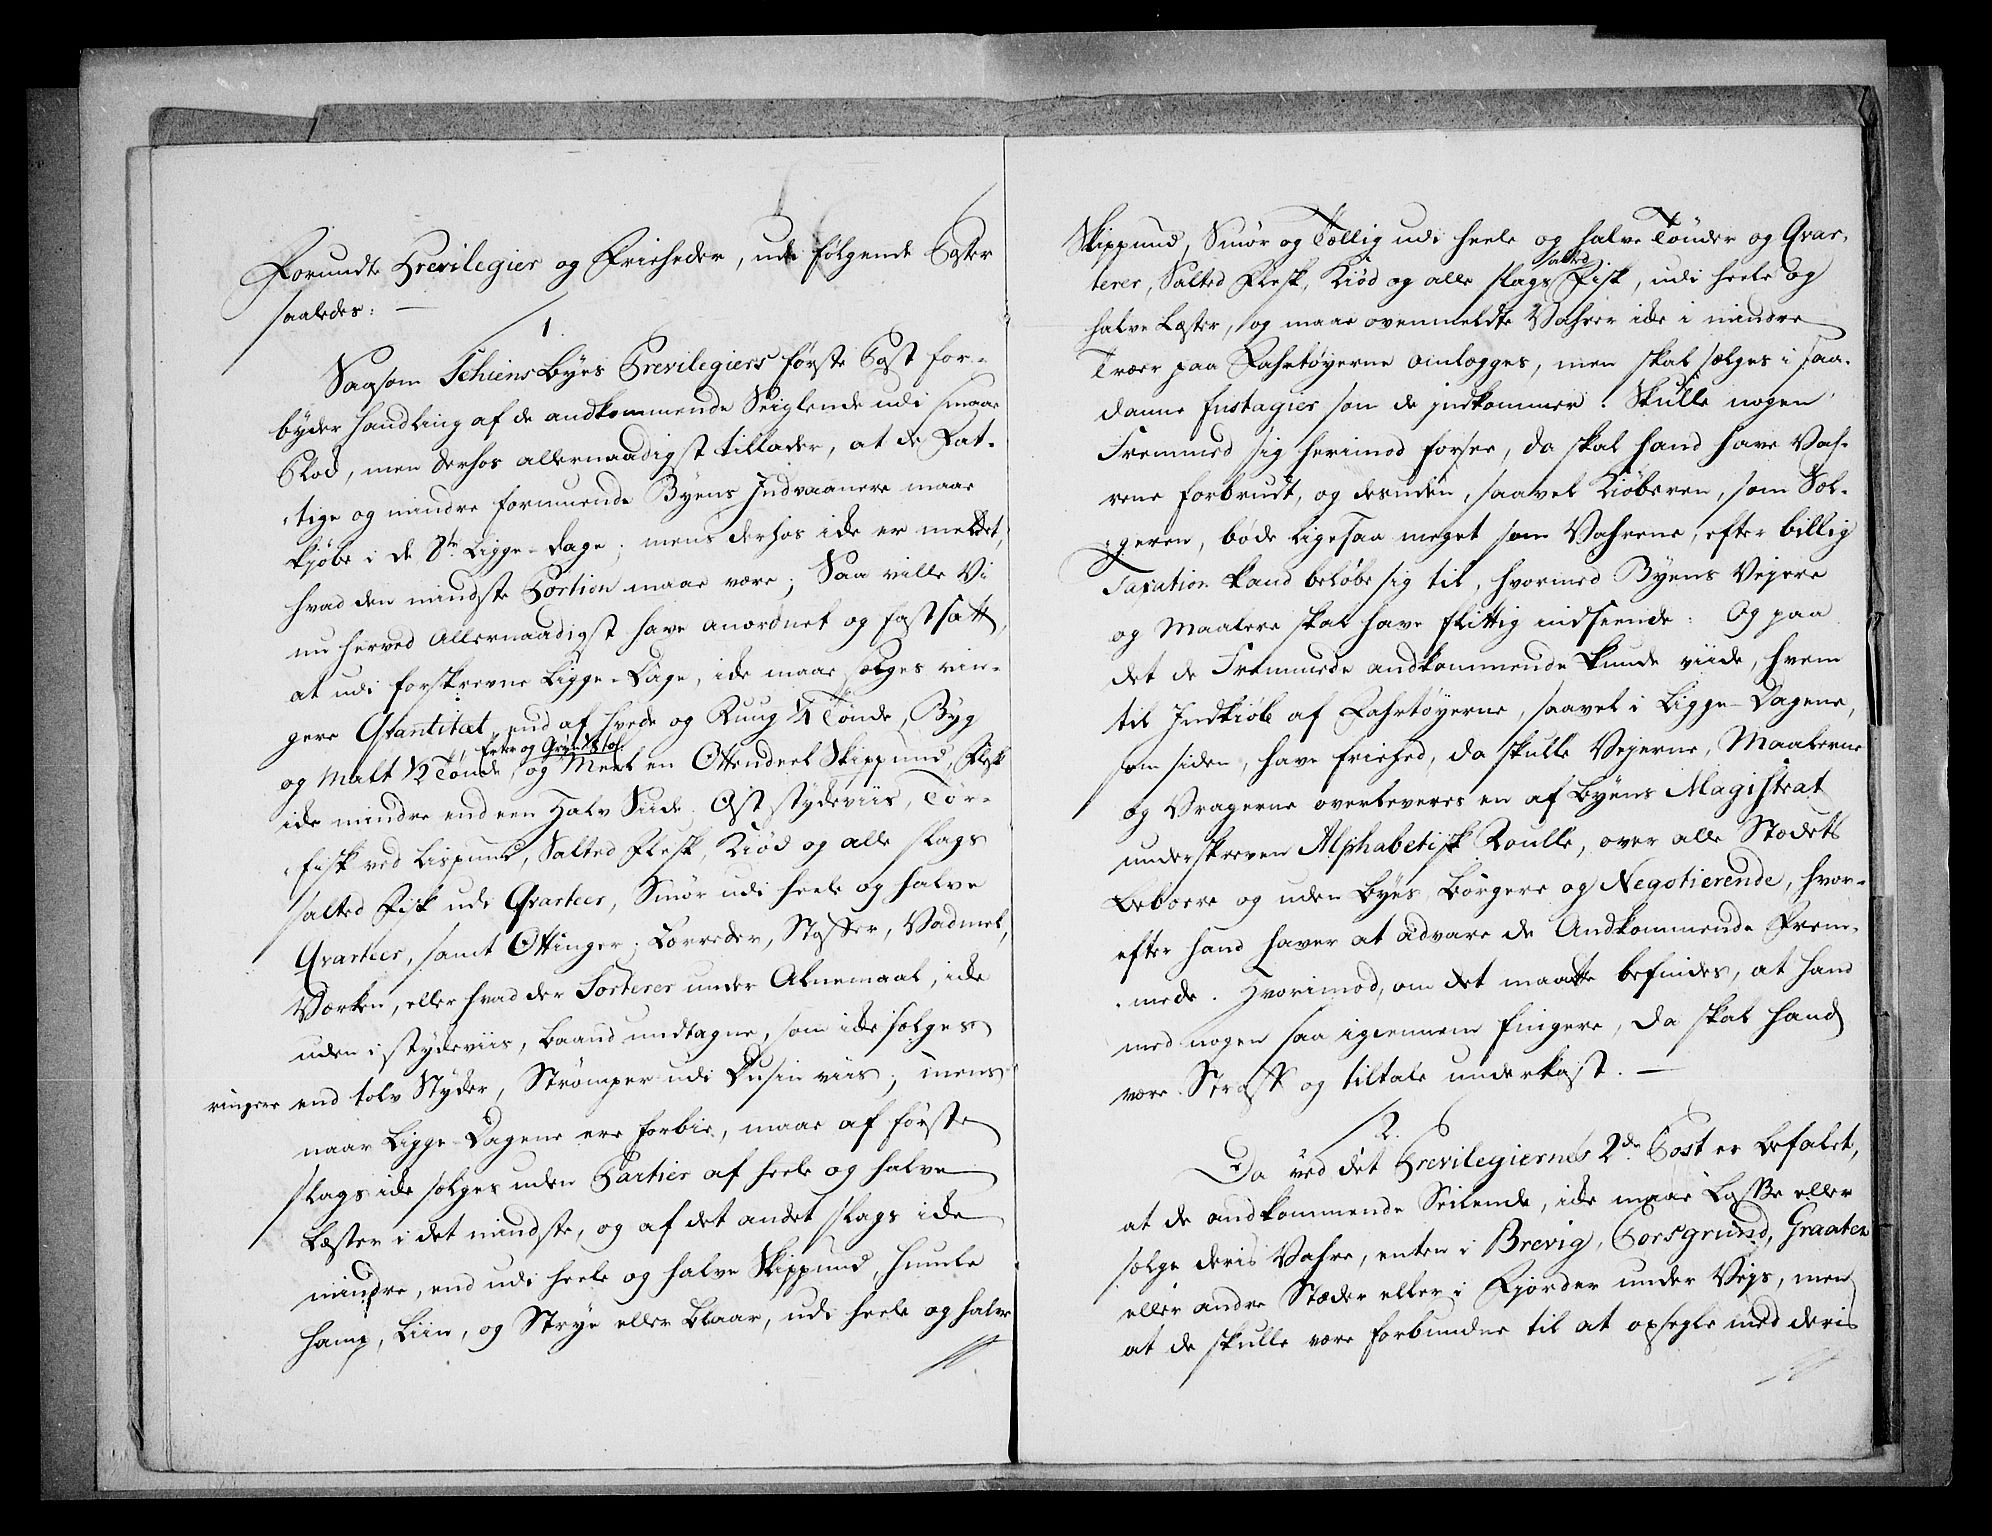 Forundte Prevelegier og Frieheder, udi følgende Poster
saaledes: —
1.
Saasom Schiens Byes Previlegiers første Post for-
byder handling af de andkommende Seiglende udi smaae
Plod, men derhos allernaadigst tillader, at de Fat-
tige og mindre formuende Byens Indvaanere maae
kjøbe i de 8te Ligge-Dage; mens derhos icke er meldet,
hvad den mindste Portion maae være; Saa ville Vi
nu herved Allernaadigst have anordnet og fastsatt,
at udi forskrevne Ligge-Dage, icke maae sælges rin-
gere Qvantitæt, end af Hvede og Ruug ¼ Tønde, Byg
Erter og Gryn
og Malt ½ Tønde, og Meel en Ottendeel Skippund, Flesk
icke mindre end een Halv Siide, Ost stydeviis, Tør-
fisk ved Lispund, Salted Flesk, Kiød og alle slags
salted Fisk udi Qvarteer, Smør udi heele og halve
Qvarteer, samt Ottinger; Lærreder, Stoffer, Vadmel,
Værken, eller hvad der Sorterer under Alnemaal, icke
uden i stydeviis, Baand undtagne, som icke sælges
ringere end tolv Styder, Strømper udi Dusin viis; mens
naar Ligge-Dagene ere forbie, maae af første
slags icke sælges uden Partier af heele og halve
Læster i det mindste, og af det andet slags icke
mindre, end udi heele og halve Skippund, Humle
Hamp, Liin, og Strye eller Blaar, udi heele og halve
Skippund, Smør og Tællig udi heele og halve Tønder og Qvar-
salted
terer, Salted Flesk, Kiød og alle slags Fisk, udi heele og
halve Læster, og maae ovenmeldte Vahrer icke i mindre
Træer paa Fahrtøyerne omlægges, men skal sælges i saa-
danne Fustagier som de indkommer. Skulle nogen
Fremmed sig herimod forsee, da skal hand have Vah-
rene forbrudt, og desuden, saavel Kiøberen, som Sæl-
geren, bøde ligesaa meget som Vahrene, efter billig
Taxation kand beløbe sig til, hvormed Byens Vejere
og Maalere skal have flittig indseende: Og paa
det de Fremmede andkommende kunde viide, hvem
til Indkiøb af Fahrtøyerne, saavel i Ligge-Dagene,
som siden, have friehed, da skulle Vejerne, Maalerne
og Vragerne overleveres en af Byens Magistrat
underskreven Alphabetisk Roulle, over alle Stædets
Beboere og uden Byes Borgere og Negotierende, hvor-
efter hand haver at advare de Andkommende Frem-
mede. Hvorimod, om det maatte befindes, at hand
med nogen saa igiennem fingere, da skal hand
være Straff og tiltale underkast. —
2.
Da ved det Previlegiernes 2de Post er befalet,
at de andkommende Seilende, icke maae Losse eller
sælge deris Vahre, enten i Brevig, Porsgrund, Graaten
eller andre Stæder eller i Fjorder under Veys, men
at de skulle være forbundne til at opsegle med deris